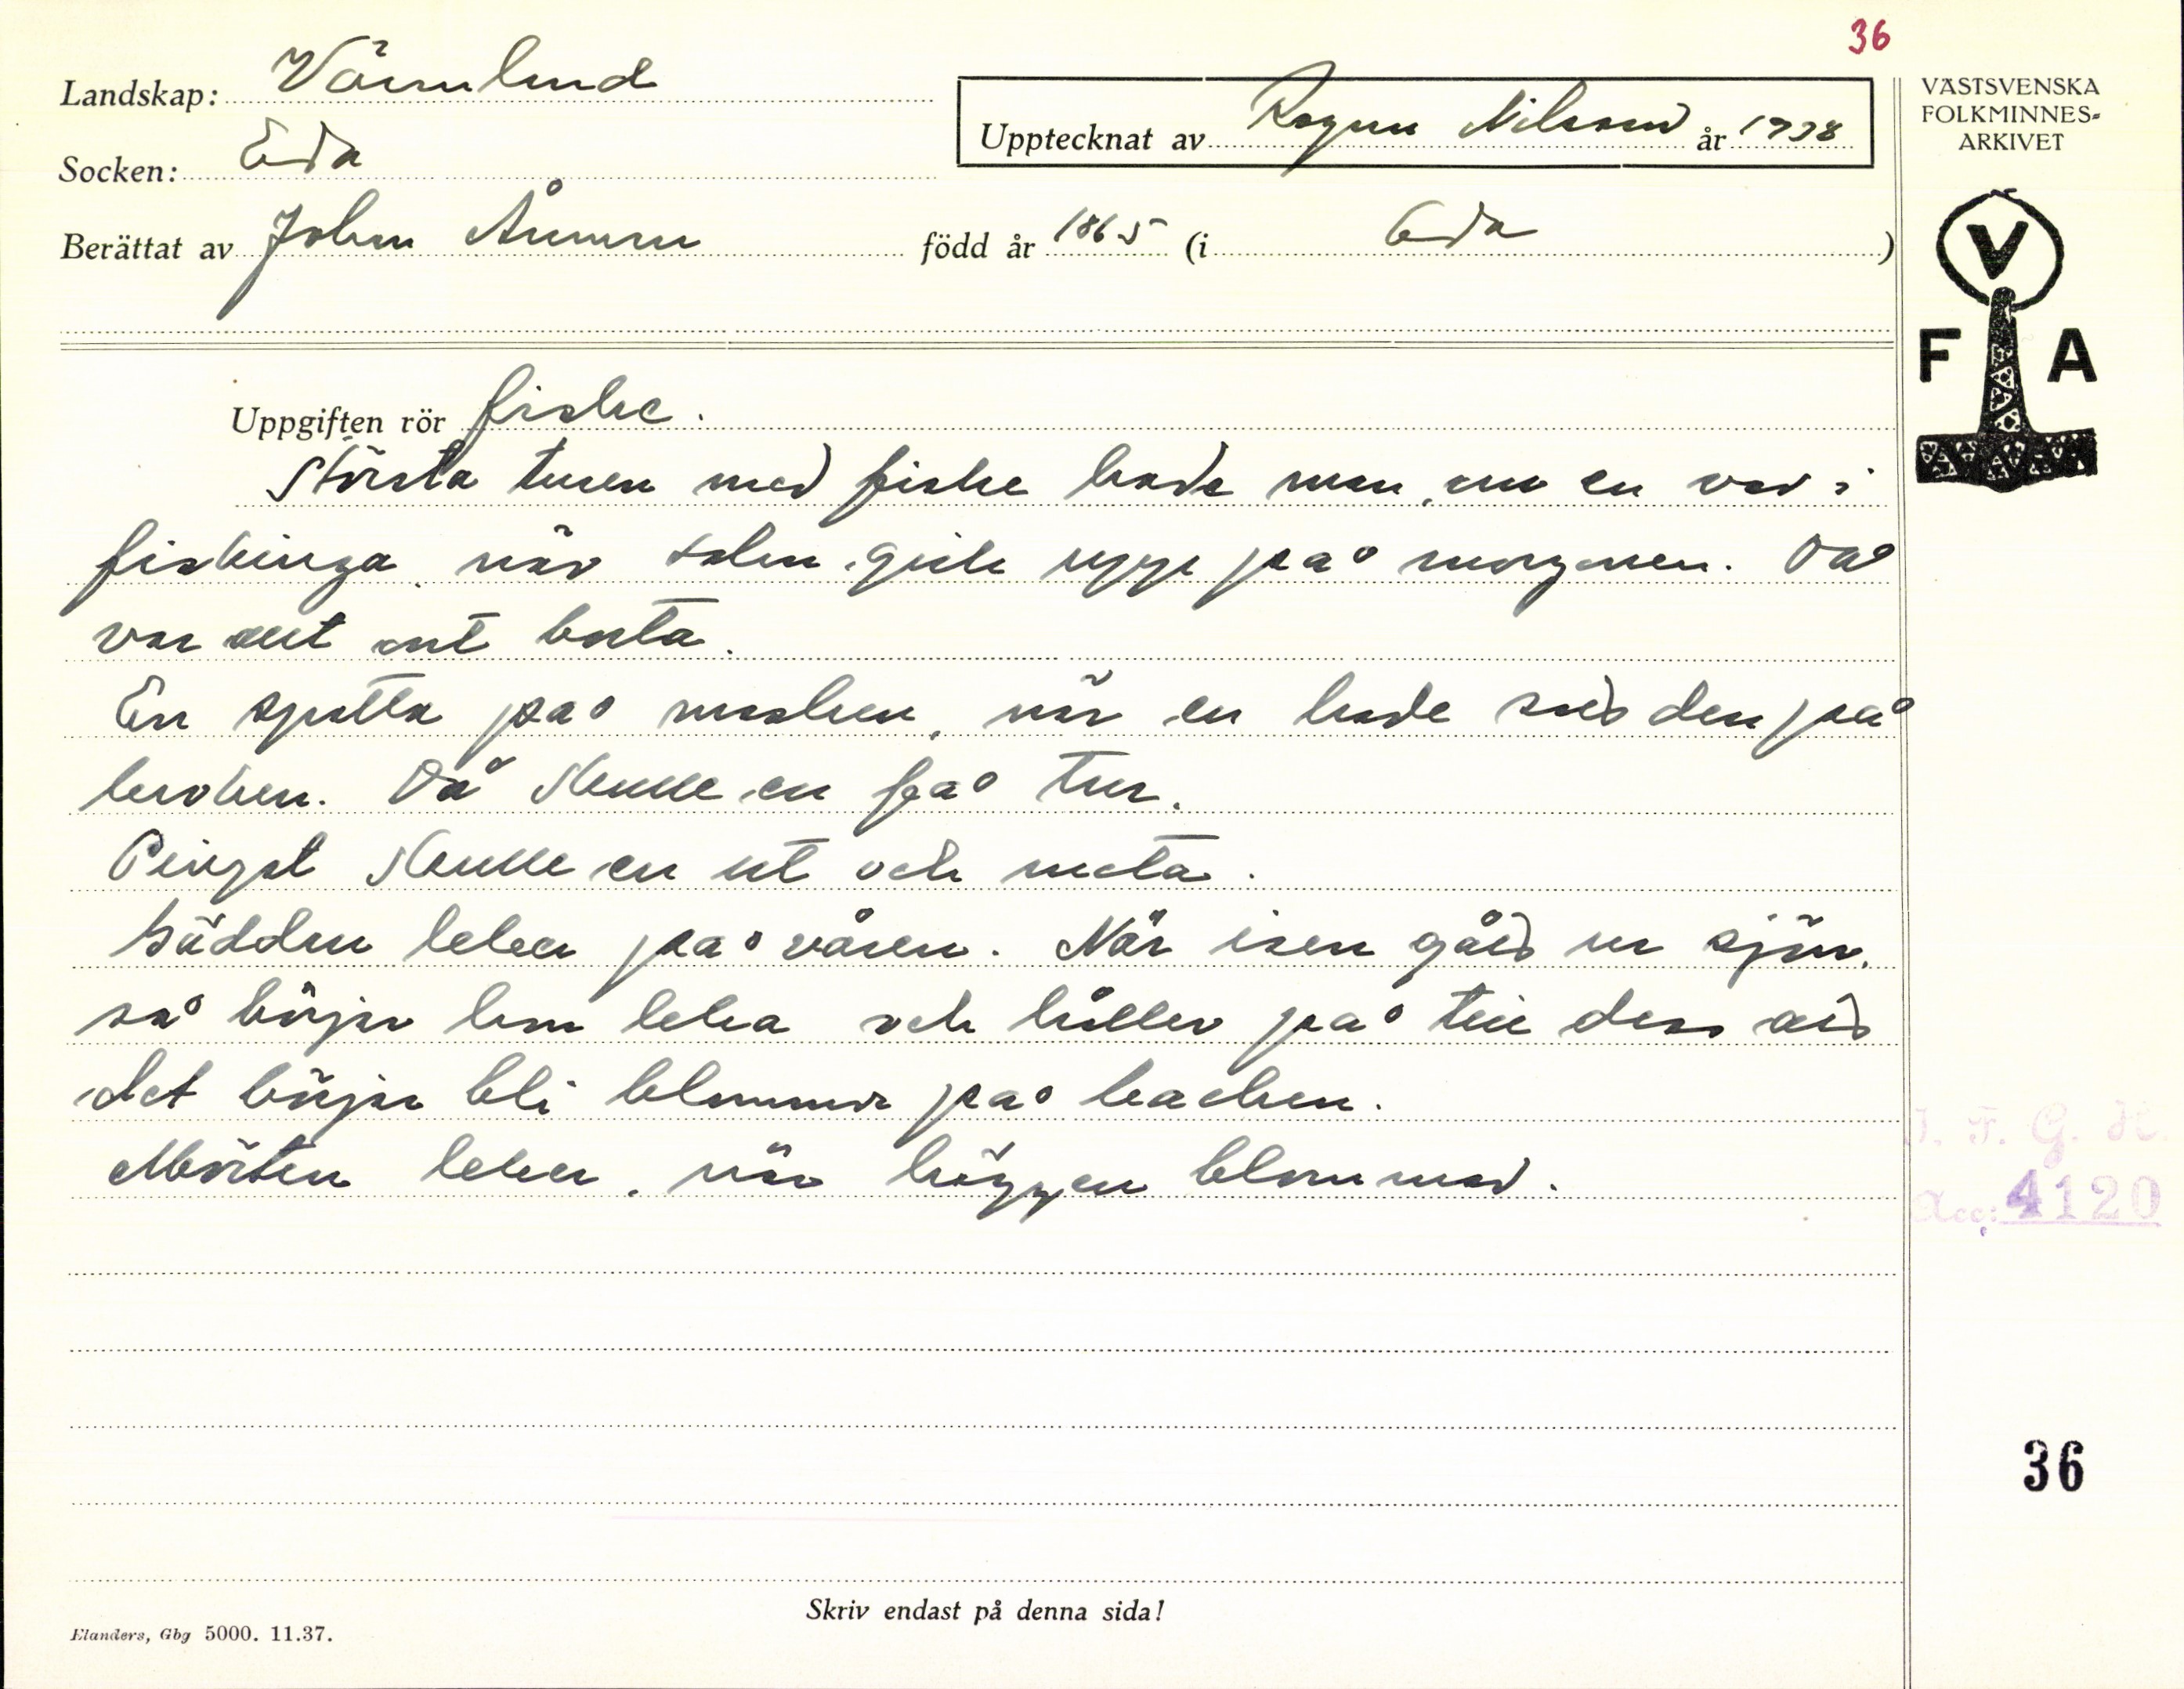 36
Landskap: Värmland
Upptecknat av Ragnar Nilsson år 1938
Socken: Eda
Berättat av Johan född år 1865 (i Eda)
VÄSTSVENSKA
FOLKMINNES-
ARKIVET
V
F A
Uppgiften rör fiske.
Största turen med fiske hade man, om en var i
fiskinga, när solen gick upp på morgonen. Då
var allt ont borta.
En spotta på masken, när en hade satt den på
kroken. Då skulle en få tur.
Pingst skulle en ut och meta.
Gäddan leker på våren. När isen går ur sjön,
så börjar hon leka och håller på till dess att
det börjar bli blommor på backen.
Mörten leker, när häggen blommar.
J. F. G. H.
Acc: 4120
36
Skriv endast på denna sida!
Elanders, Gbg 5000. 11.37.